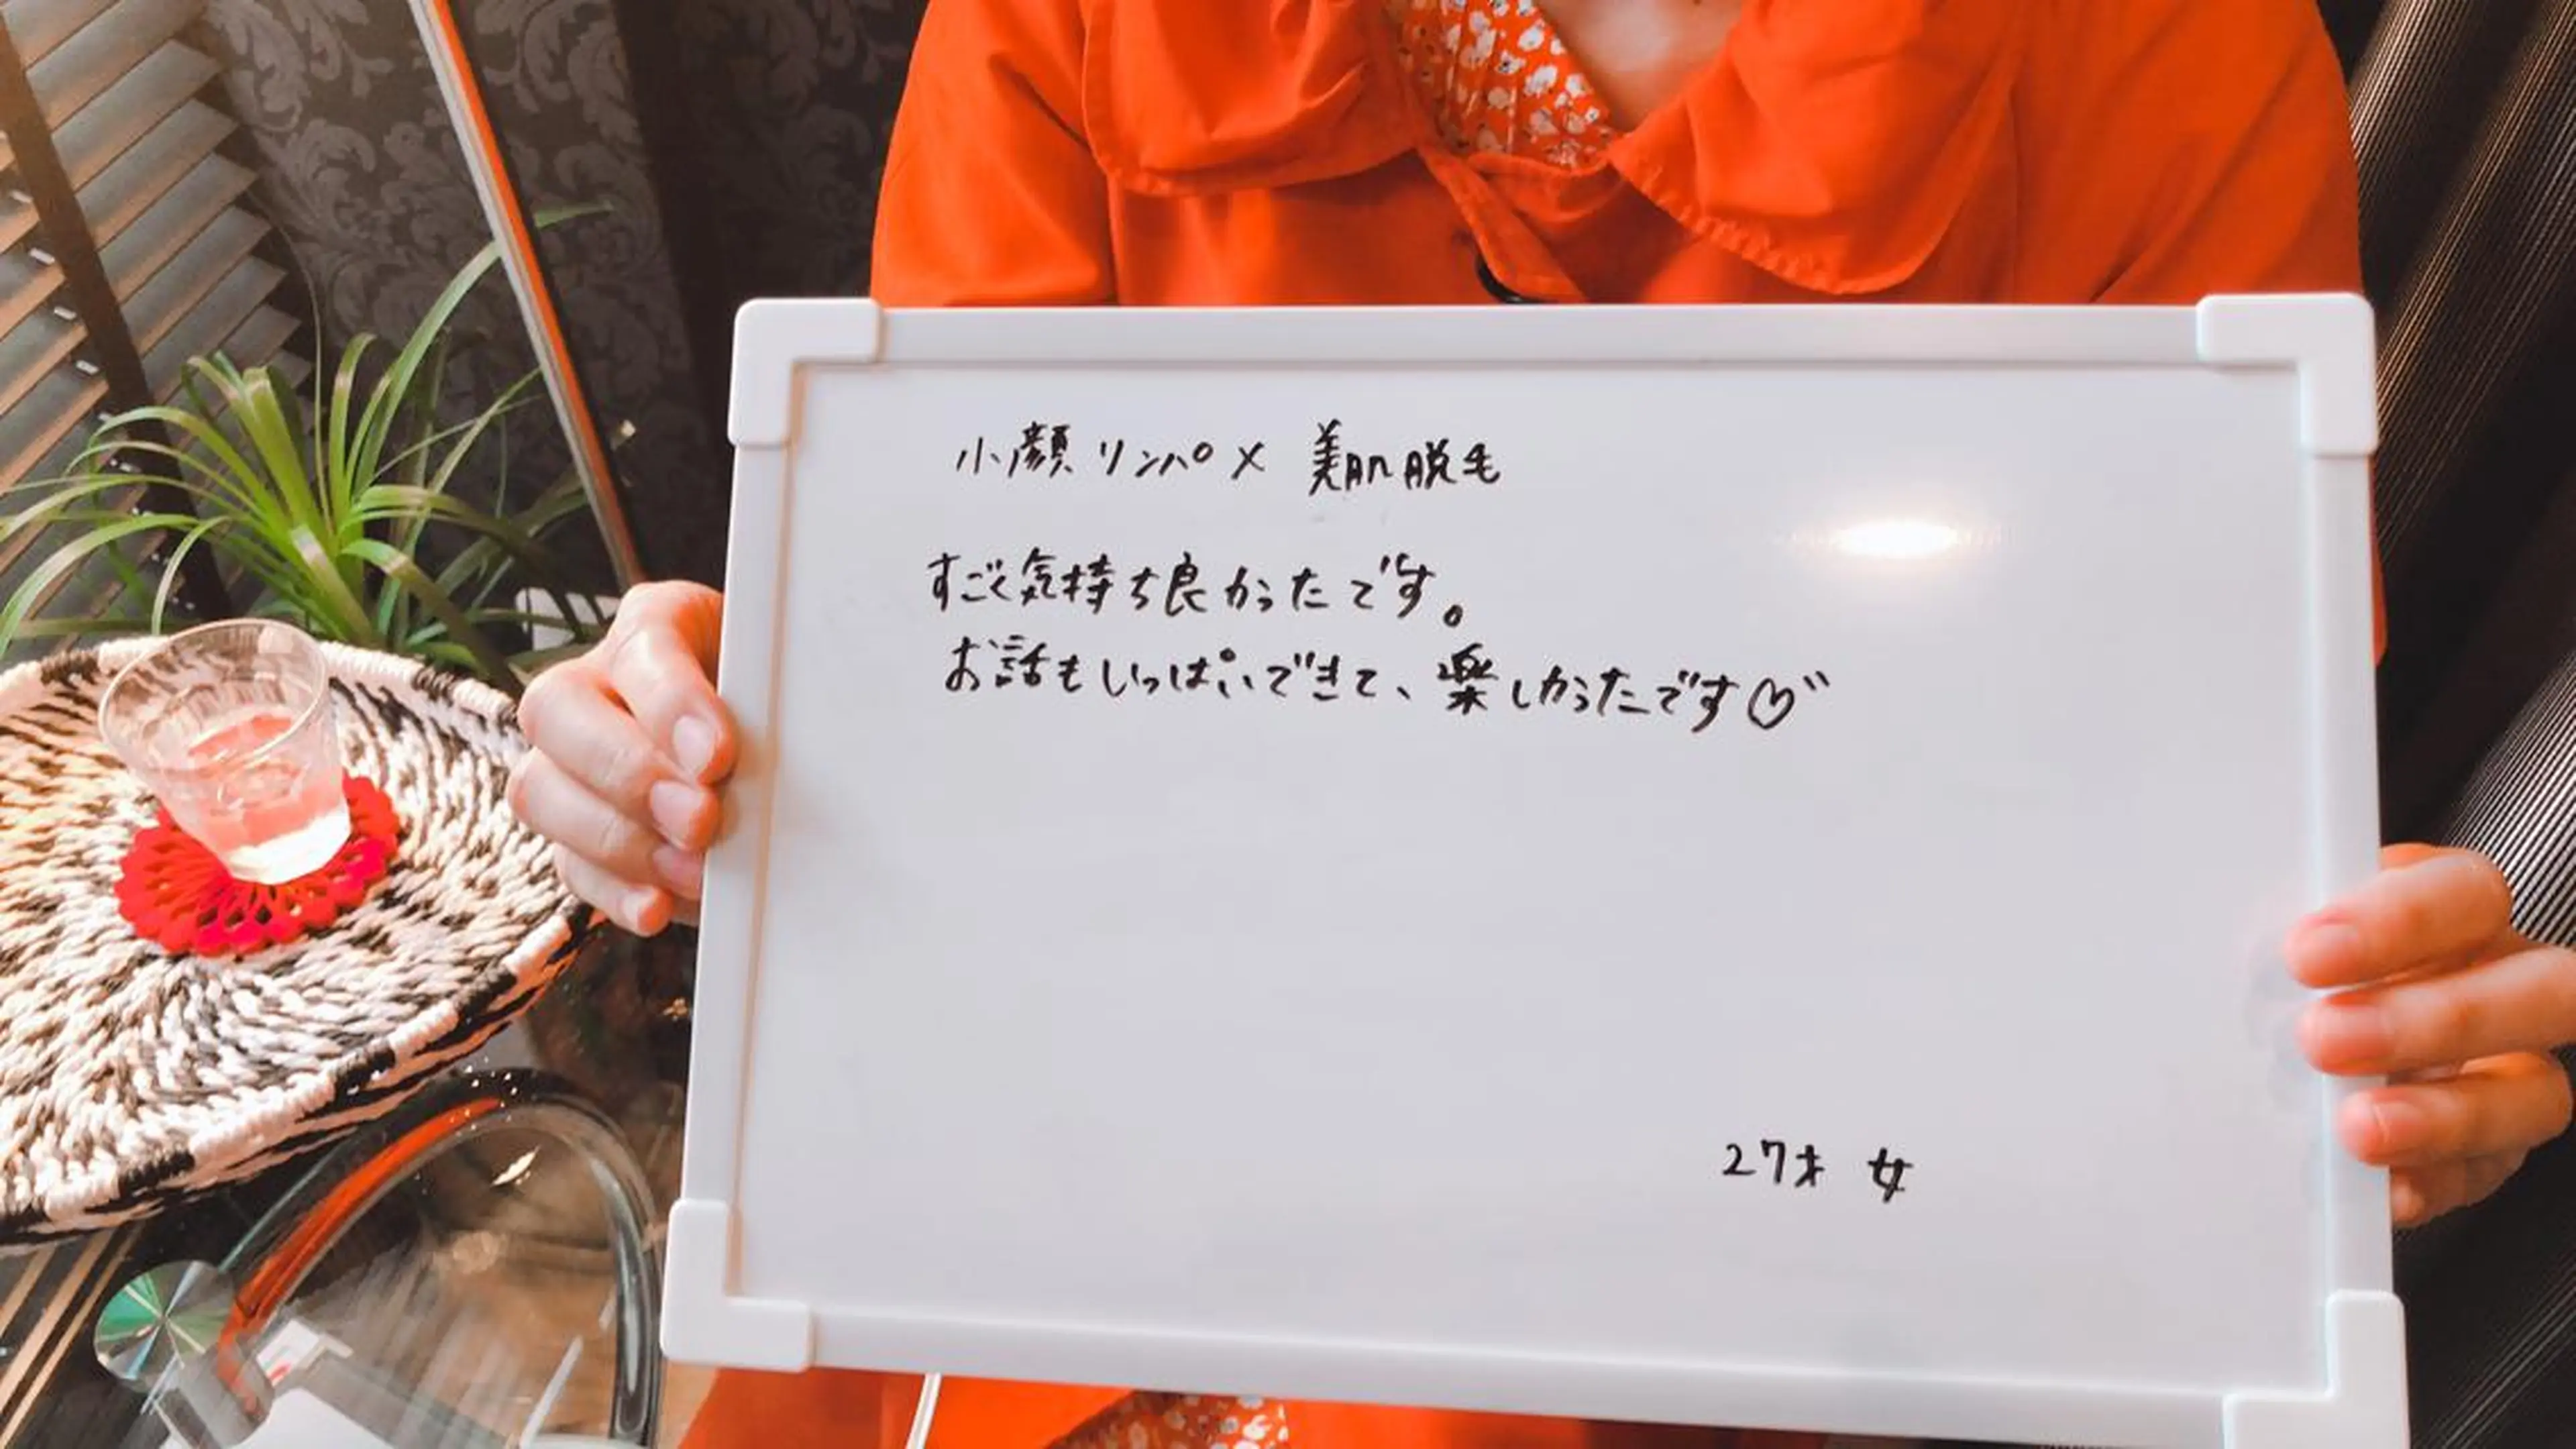 小顔リンパ × 美肌脱毛
すごく気持ち良かったです。
お話もいっぱいできて、楽しかったです♡
27才 女